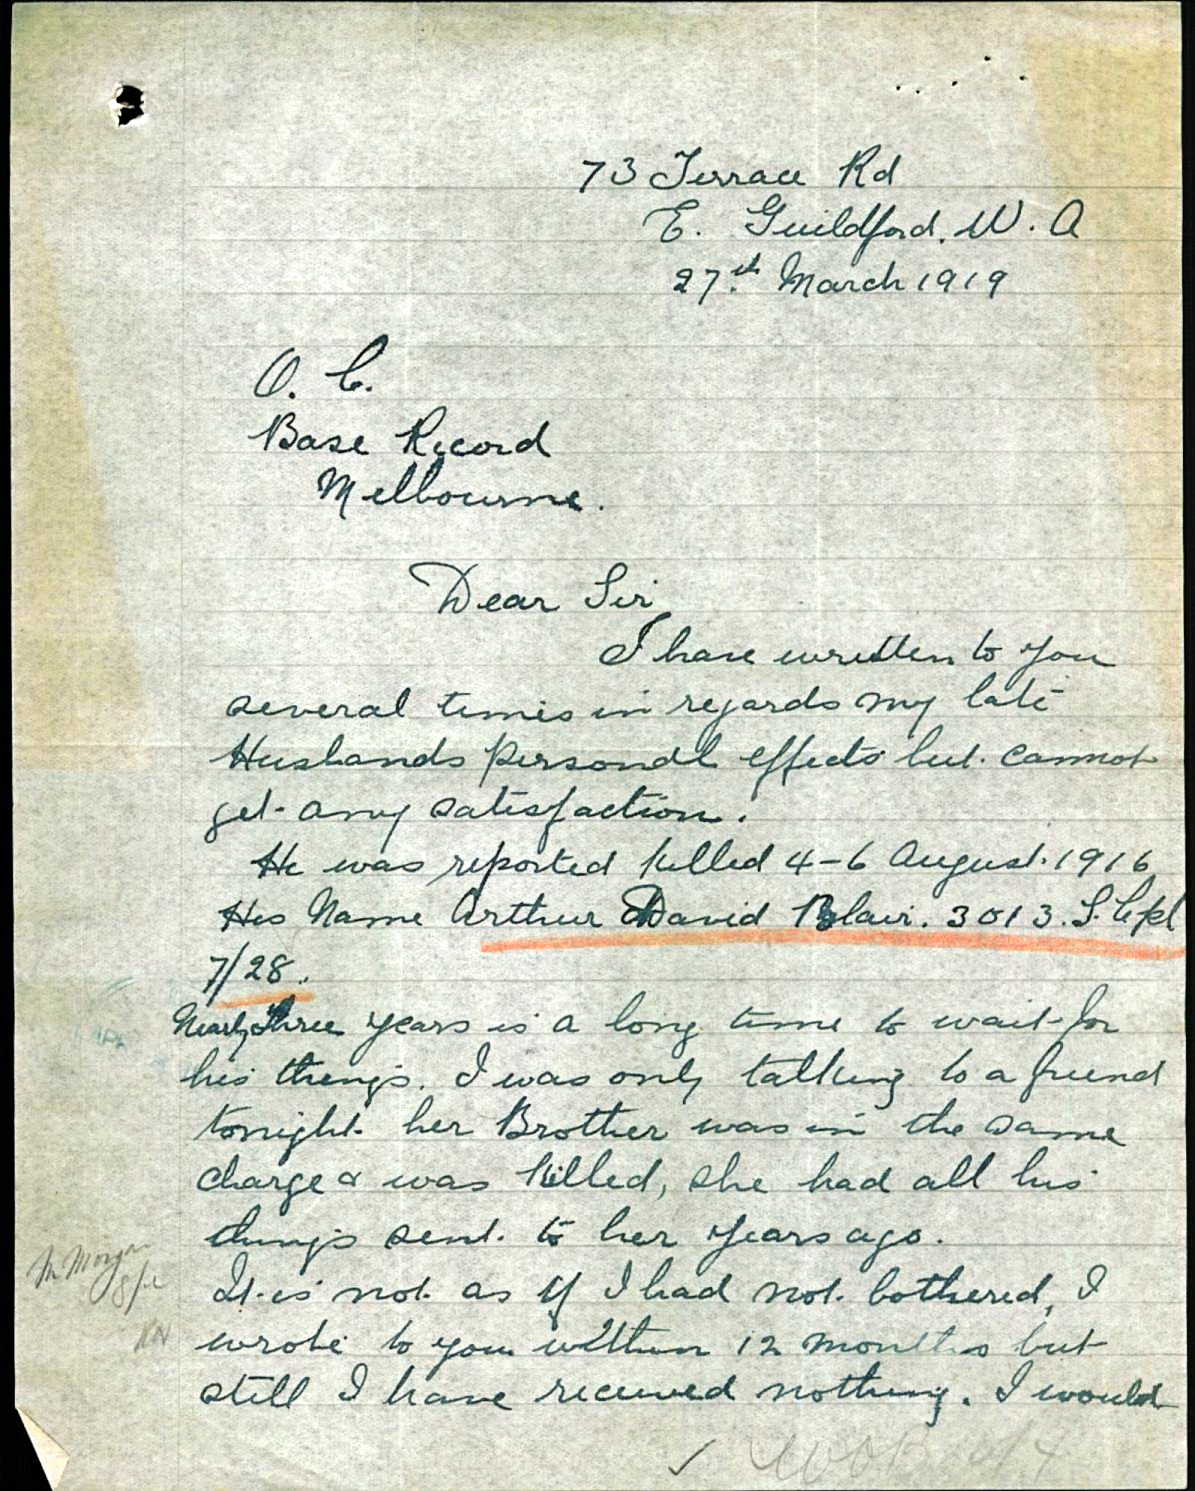 73 Terrace Rd
E. Guildford. W. A
27th March 1919
O. C.
Base Record
Melbourne.
Dear Sir
I have written to you
several times in regards my late
Husbands personal effects but cannot
get any satisfaction.
He was reported killed 4-6 August 1916
His Name Arthur David Blair. 3013. L. Cpl
7/28.
Nearly three years is a long time to wait for
his things. I was only talking to a friend
tonight her Brother was in the same
charge & was killed, she had all his
things sent to her years ago.
It is not as if I had not bothered, I
M Morgan
wrote to you within 12 months but
still I have received nothing. I would